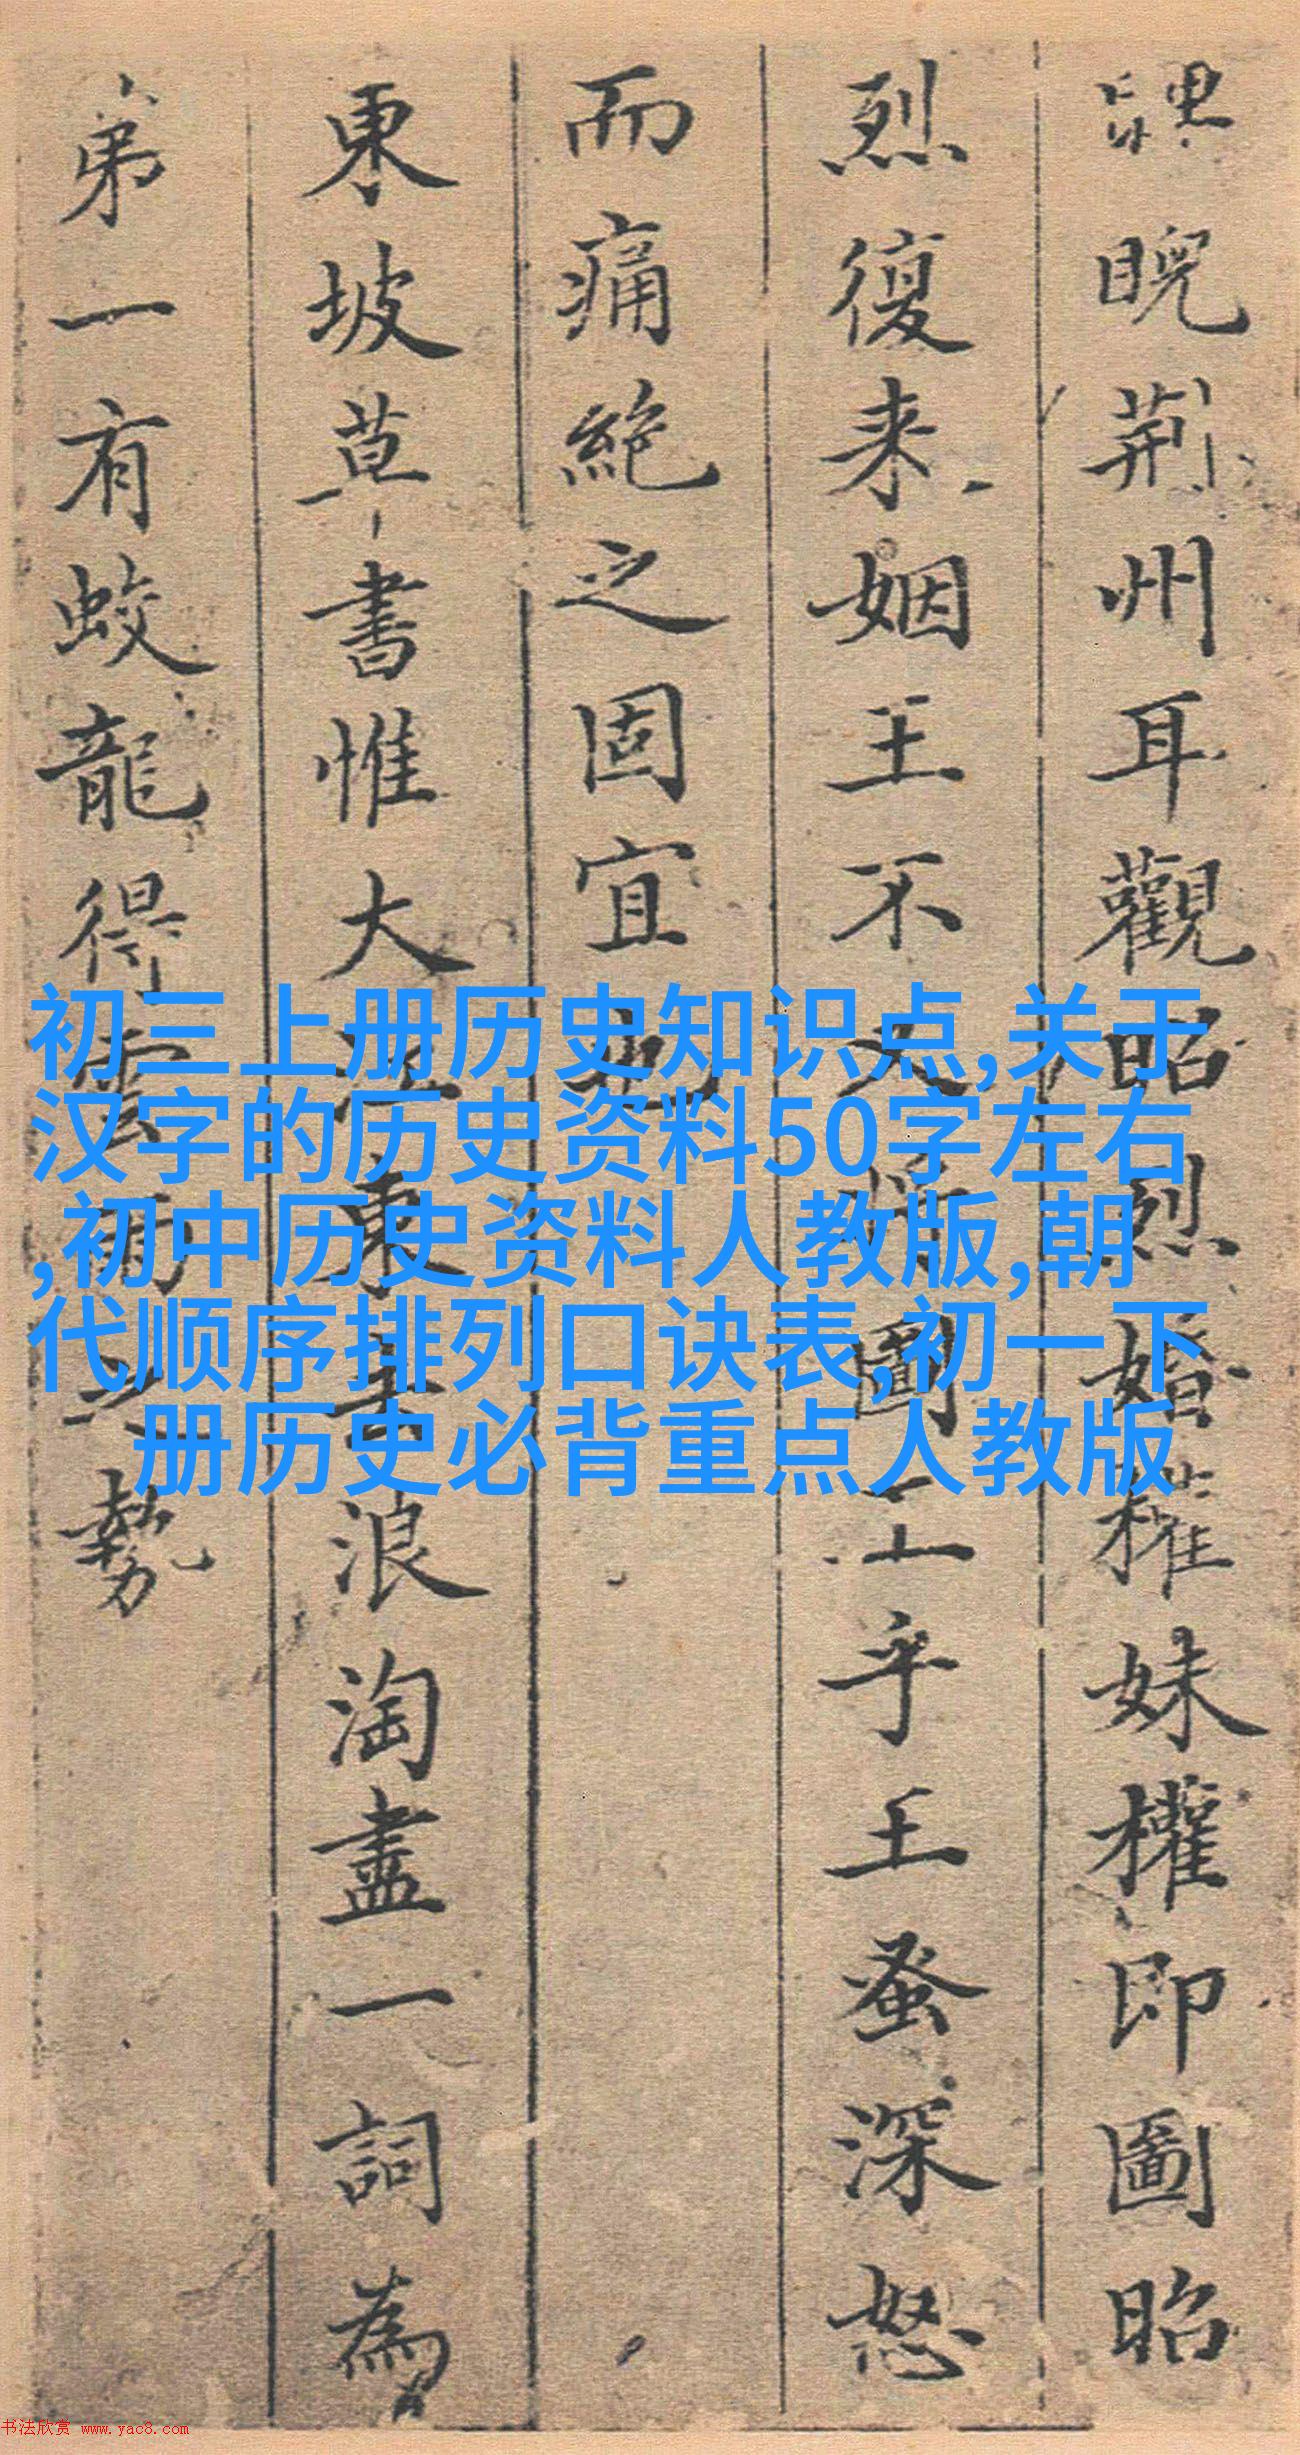 睨荊州耳觀昭烈婚權妹權即圖昭
烈復来姻王不將圖王乎王蚤深怒
而痛絶之固宜也
東坡草書惟大江東去浪淘盡一詞為
弟一有蛟龍得雲雨之勢
初三上册历史知识点,关于
汉字的历史资料50字左右
,初中历史资料人教版,朝
代顺序排列口诀表,初一下
册历史必背重点人教版
书法欣赏 www.yac8.com